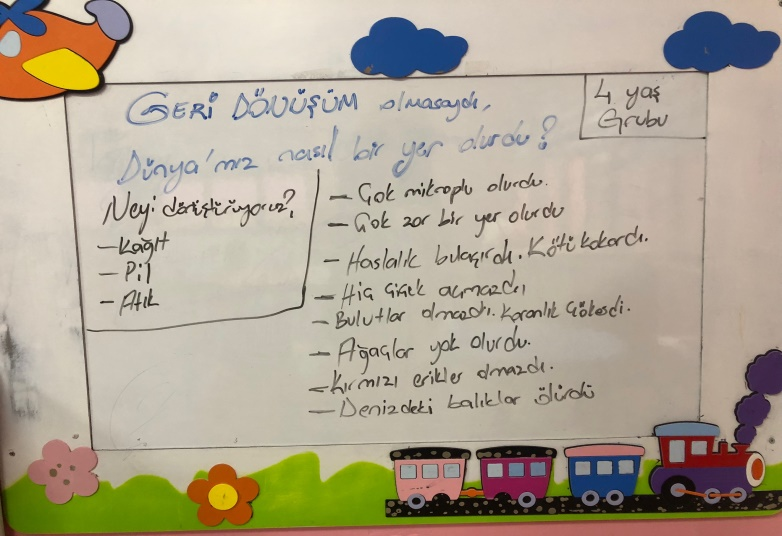 GERİ DÖNÜŞÜM olmasaydı,
Dünya'mız nasıl bir yer olurdu?
4 yaş
Grubu
Neyi dönüştürüyoruz?
- Kağıt
- Pil
- Atık
- Çok mikroplu olurdu.
- Çok zor bir yer olurdu
- Hastalık bulaşırdı. Kötü kokardı.
- Hiç çiçek açmazdı
- Bulutlar olmazdı. Karanlık çökerdi.
- Ağaçlar yok olurdu.
- Kırmızı erikler olmazdı.
- Denizdeki balıklar ölürdü